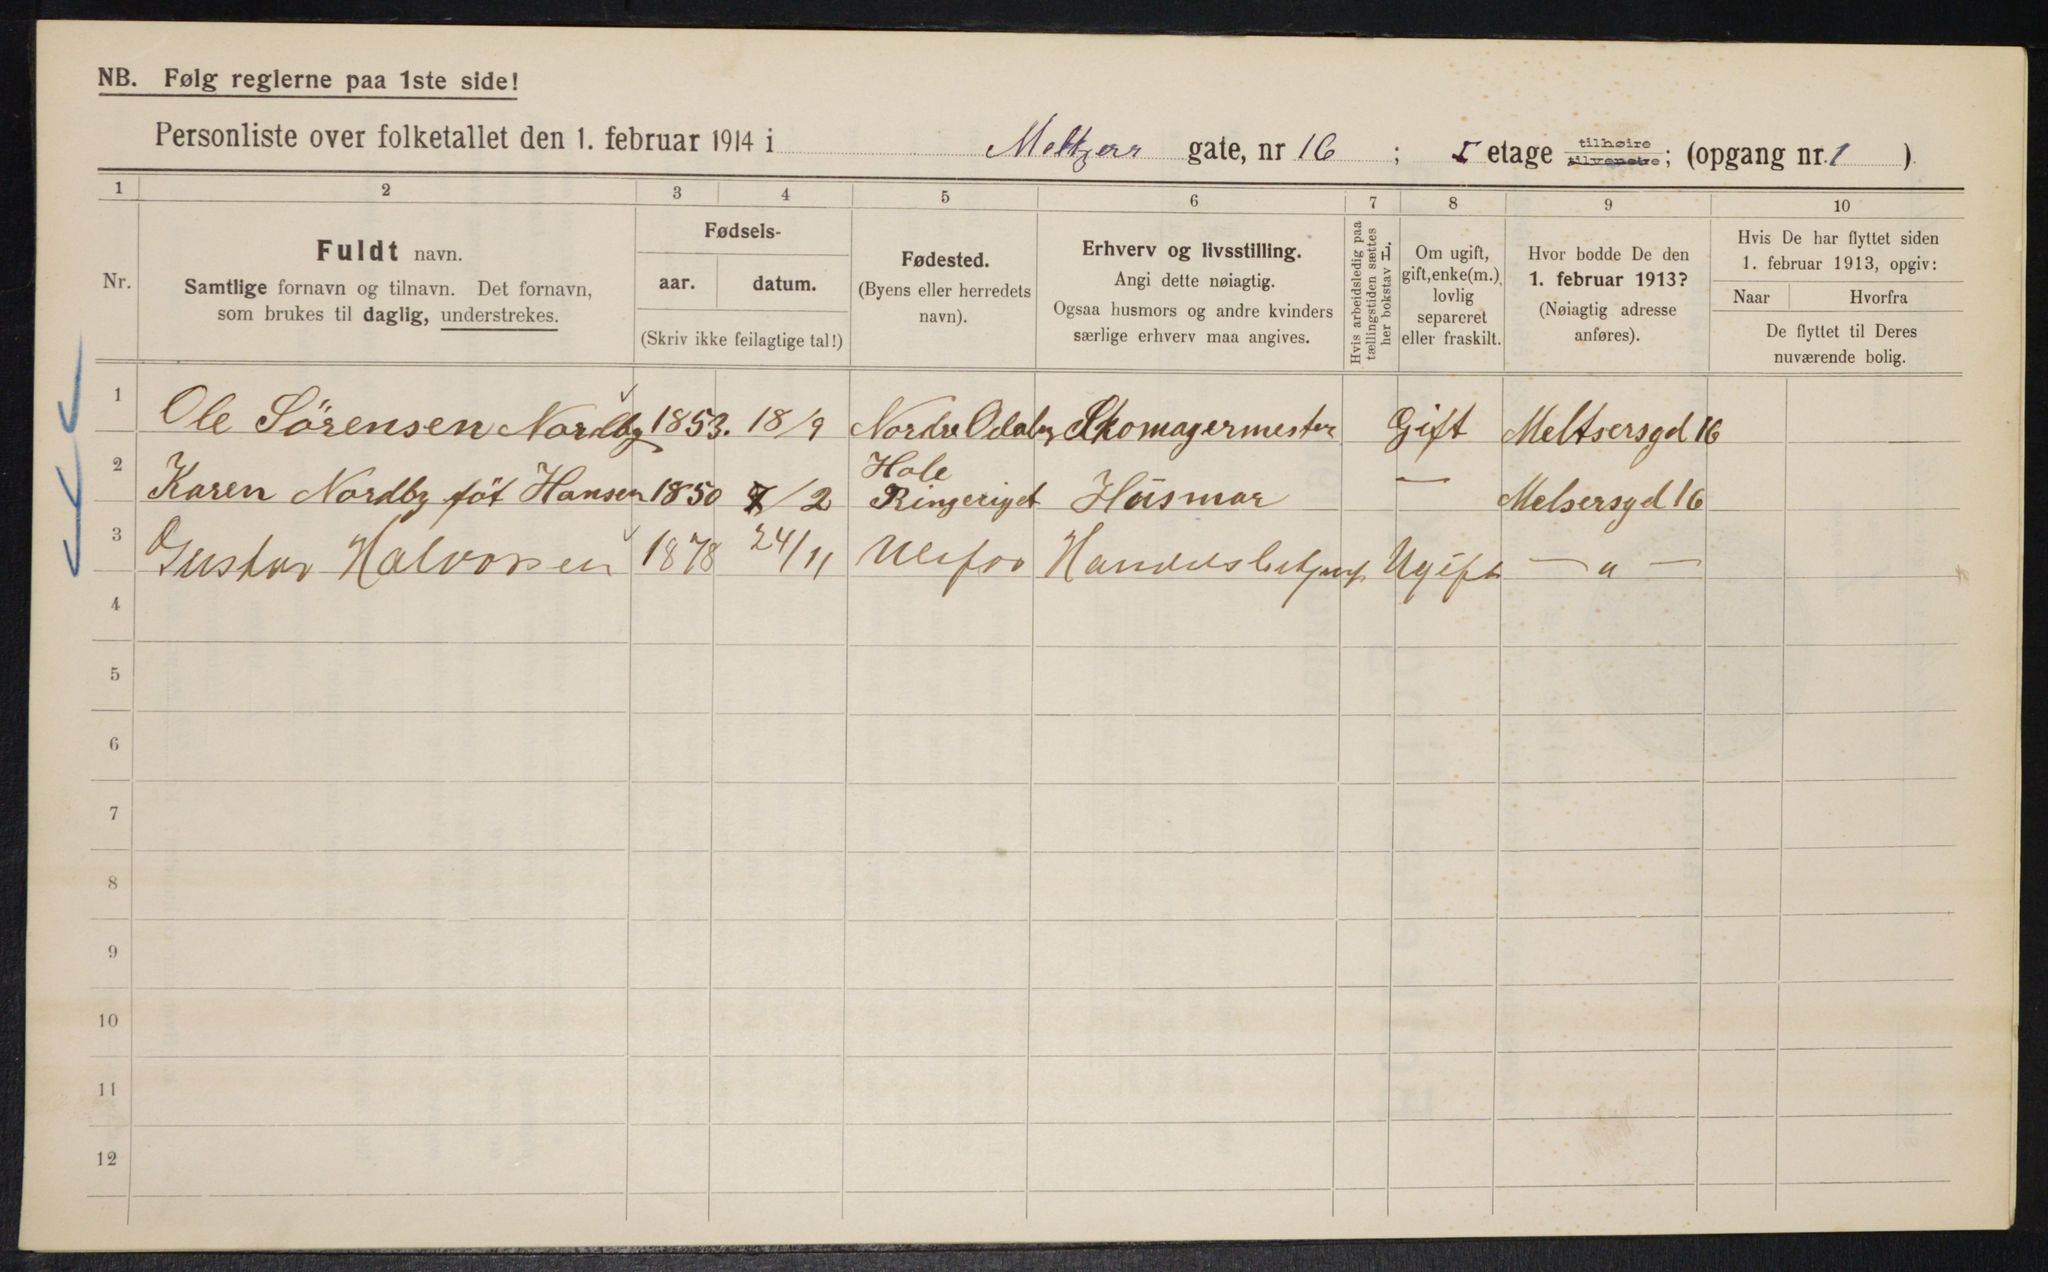 NB. Følg reglerne paa 1ste side!
Personliste over folketallet den 1. februar 1914 i Meltzers gate, nr 16 ; I etage tilhøire tilvenstre; (opgang nr. 1 )
1 2 3 4 5 6 7 8 9 10
Nr.
Fuldt navn.
Samtlige fornavn og tilnavn. Det fornavn,
som brukes til daglig, understrekes.
Fødsels-
aar. datum.
(Skriv ikke feilagtige tal!)
Fødested.
(Byens eller herredets
navn).
Erhverv og livsstilling.
Angi dette nøiagtig.
Ogsaa husmors og andre kvinders
særlige erhverv maa angives.
Hvis arbeidsledig paa
tællingstiden sættes
her bokstav L.
Om ugift,
gift, enke(m.),
lovlig
separeret
eller fraskilt.
Hvor bodde De den
1. februar 1913?
(Nøiagtig adresse
anføres).
Hvis De har flyttet siden
1. februar 1913, opgiv:
Naar Hvorfra
De flyttet til Deres
nuværende bolig.
1 Ole Sörensen Nordby 1853. 18/9 Nordre Skomagermester Gift Meltsersgd 16
Hole
2 Karen Nordby föt Hansen 1850 /2 Ringeriget Husmor — Melsersgd 16
3 Gustav Halvorsen 1878 24/11 Ulefos Ugift — " —
4
5
6
7
8
9
10
11
12